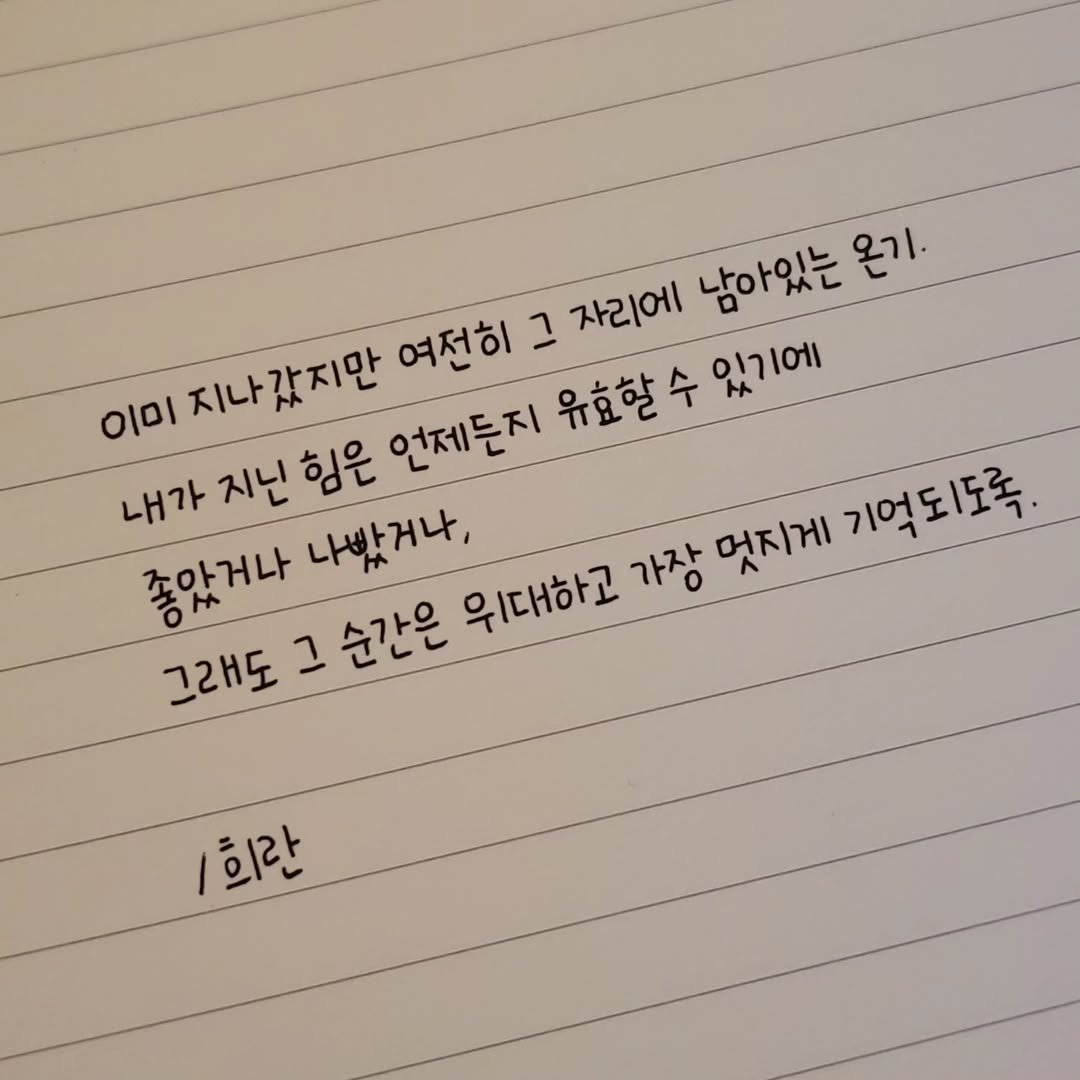 이미 지나갔지만 여전히 그 자리에 남아있는 온기.
내가 지닌 힘은 언제든지 유효할 수 있기에
좋았거나 나빴거나,
그래도 그 순간은 위대하고 가장 멋지게 기억되도록.
/희란